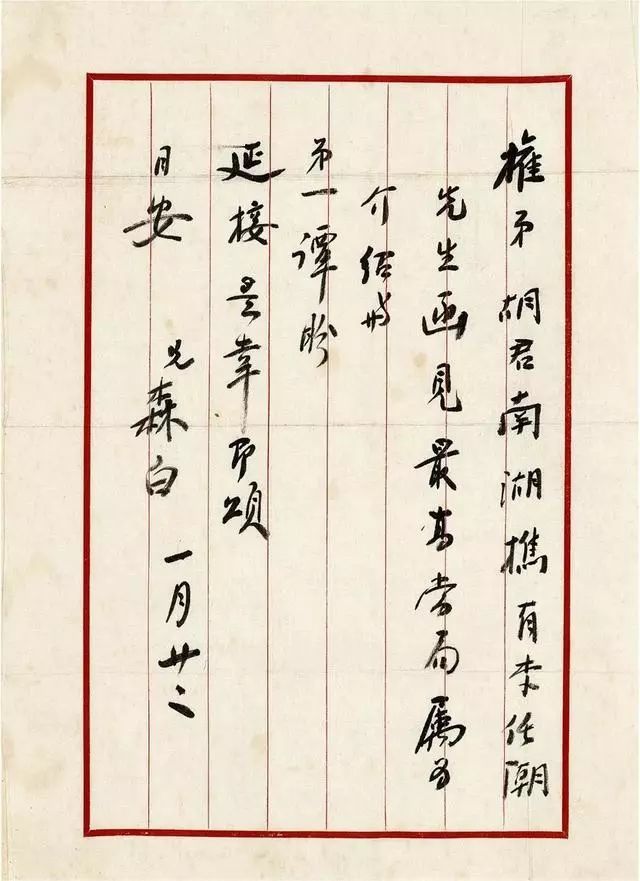 弟胡君南湖携有李任潮
先生函見最高当局属为
介绍
弟一谭盼
延接是幸即颂
日安 兄森白 一月廿二